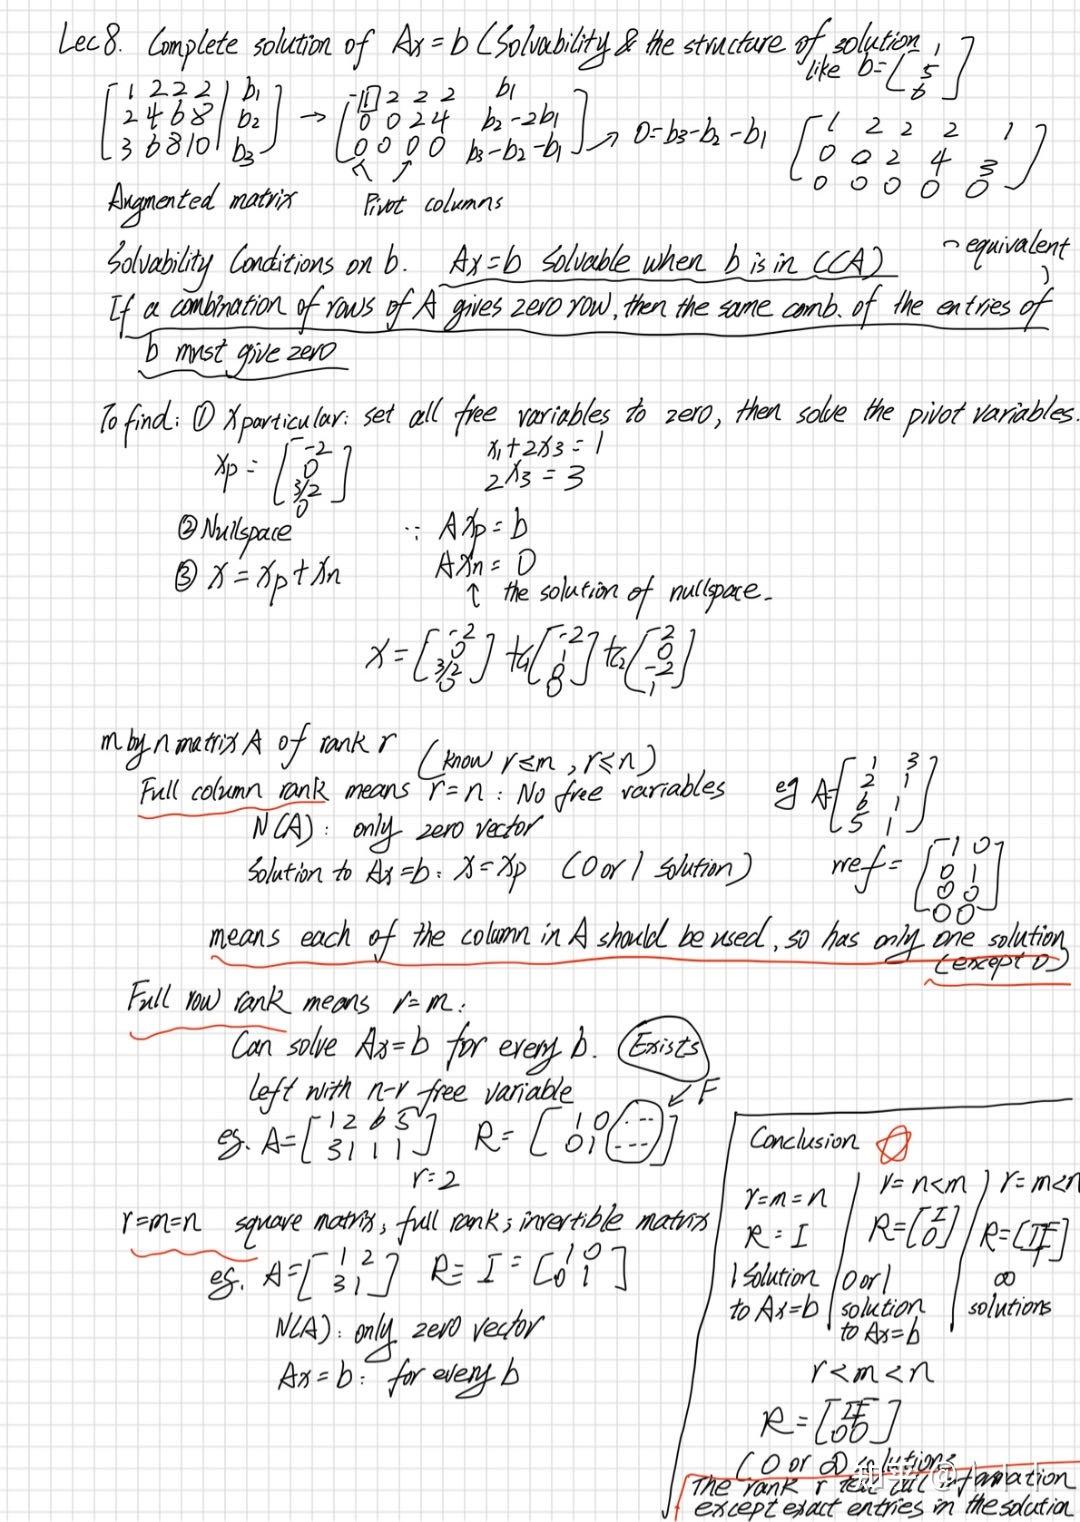 Lec 8. Complete solution of Ax=b (Solvability & the structure of solution
like b=[1 5 6]
[1 2 2 2 | b1] → [1 2 2 2 b1]
[2 4 6 8 | b2] [0 0 2 4 b2-2b1] → 0=b3-b2-b1 [1 2 2 2 1]
[3 6 8 10 | b3] [0 0 0 0 b3-b2-b1] [0 0 2 4 3]
[0 0 0 0 0]
Augmented matrix Pivot columns
Solvability Conditions on b. Ax=b solvable when b is in C(A)
equivalent
If a combination of rows of A gives zero row, then the same comb. of the entries of
b must give zero
To find: ① Xparticular: set all free variables to zero, then solve the pivot variables.
xp = [-2 0 3/2 0] x1+2x3=1
2x3=3
② Nullspace ∵ Axp=b
③ x=xp+xn Axn=0
↑ the solution of nullspace.
x=[-2 0 3/2 0] +c1[-2 1 0 0] +c2[2 0 -2 1]
m by n matrix A of rank r (know r≤m, r≤n)
Full column rank means r=n: No free variables eg A=[1 3]
[2 1]
[6 1]
[5 1]
N(A): only zero vector
Solution to Ax=b: x=xp (0 or 1 solution) rref=[1 0]
[0 1]
[0 0]
[0 0]
means each of the column in A should be used, so has only one solution
(except 0)
Full row rank means r=m:
Can solve Ax=b for every b. Exists
left with n-r free variable
F
eg. A=[1 2 6 5] R=[1 0 --]
[3 1 1 1] [0 1 ---]
r=2
r=m=n square matrix; full rank; invertible matrix
eg. A=[1 2] R=I=[1 0]
[3 1] [0 1]
N(A): only zero vector
Ax=b: for every b
Conclusion
r=m=n r=n<m r=m<n
R=I R=[I 0] R=[IF]
1 solution 0 or 1 ∞
to Ax=b solution solutions
to Ax=b
r<m<n
R=[IF 00]
(0 or ∞ solutions
The rank r tell all information
except exact entries in the solution